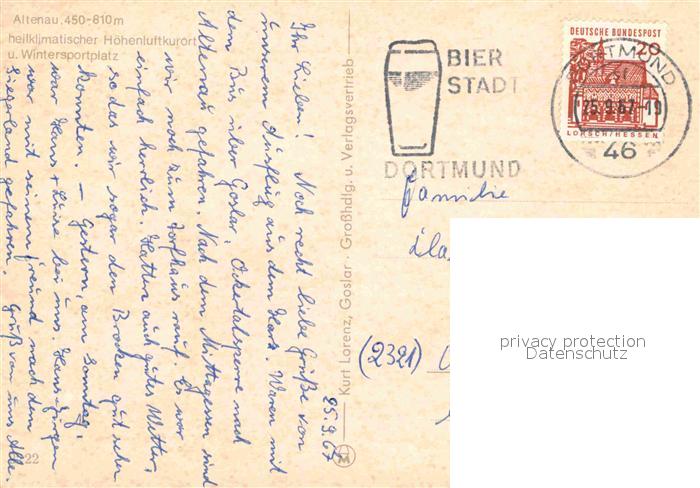 Altenau, 450-810 m
heilklimatischer Höhenluftkurort
u. Wintersportplatz
25.9.67
Ihr Lieben! Noch recht liebe Grüße von
unserem Ausflug aus dem Harz. Waren mit
dem Bus über Goslar, Ockertalsperre nach
Altenau gefahren. Nach dem Mittagessen sind
wir noch zum Torfhaus rauf. Es war
einfach herrlich. Hatten auch gutes Wetter,
sodas wir sogar den Brocken gut sehen
konnten. – Gestern, am Sonntag,
war Hans + Luise bei uns. Hans-Jürgen
war mit seinem Freund nach dem
Siegerland gefahren. Gruß von uns Alle.
22
Kurt Lorenz, Goslar · Großhdlg. u. Verlagsvertrieb
M
BIER
STADT
DORTMUND
DEUTSCHE BUNDESPOST
20
LORSCH/HESSEN
DORTMUND
25.9.67-19
46
Familie
(2321)
privacy protection
Datenschutz